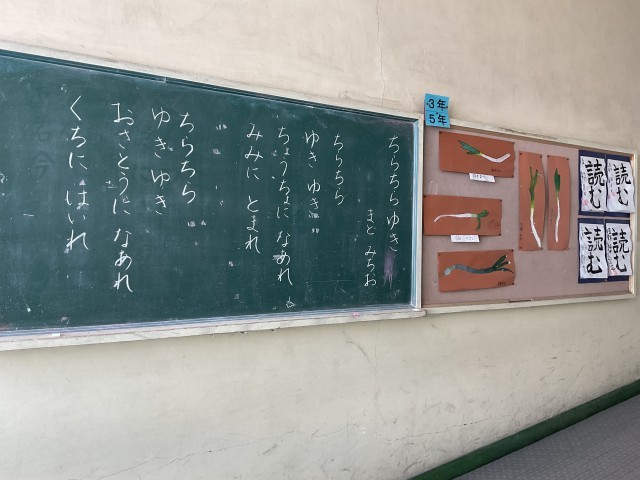 ちらちらゆき
まど みちお
ちらちら
ゆき ゆき
ちょうちょに なあれ
みみに とまれ
ちらちら
ゆき ゆき
おさとうに なあれ
くちに はいれ
3年
5年
読む
読む
読む
読む